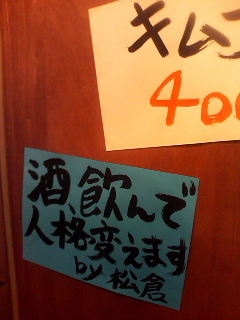 キム
400
酒、飲んで
人格変えます
by 松倉